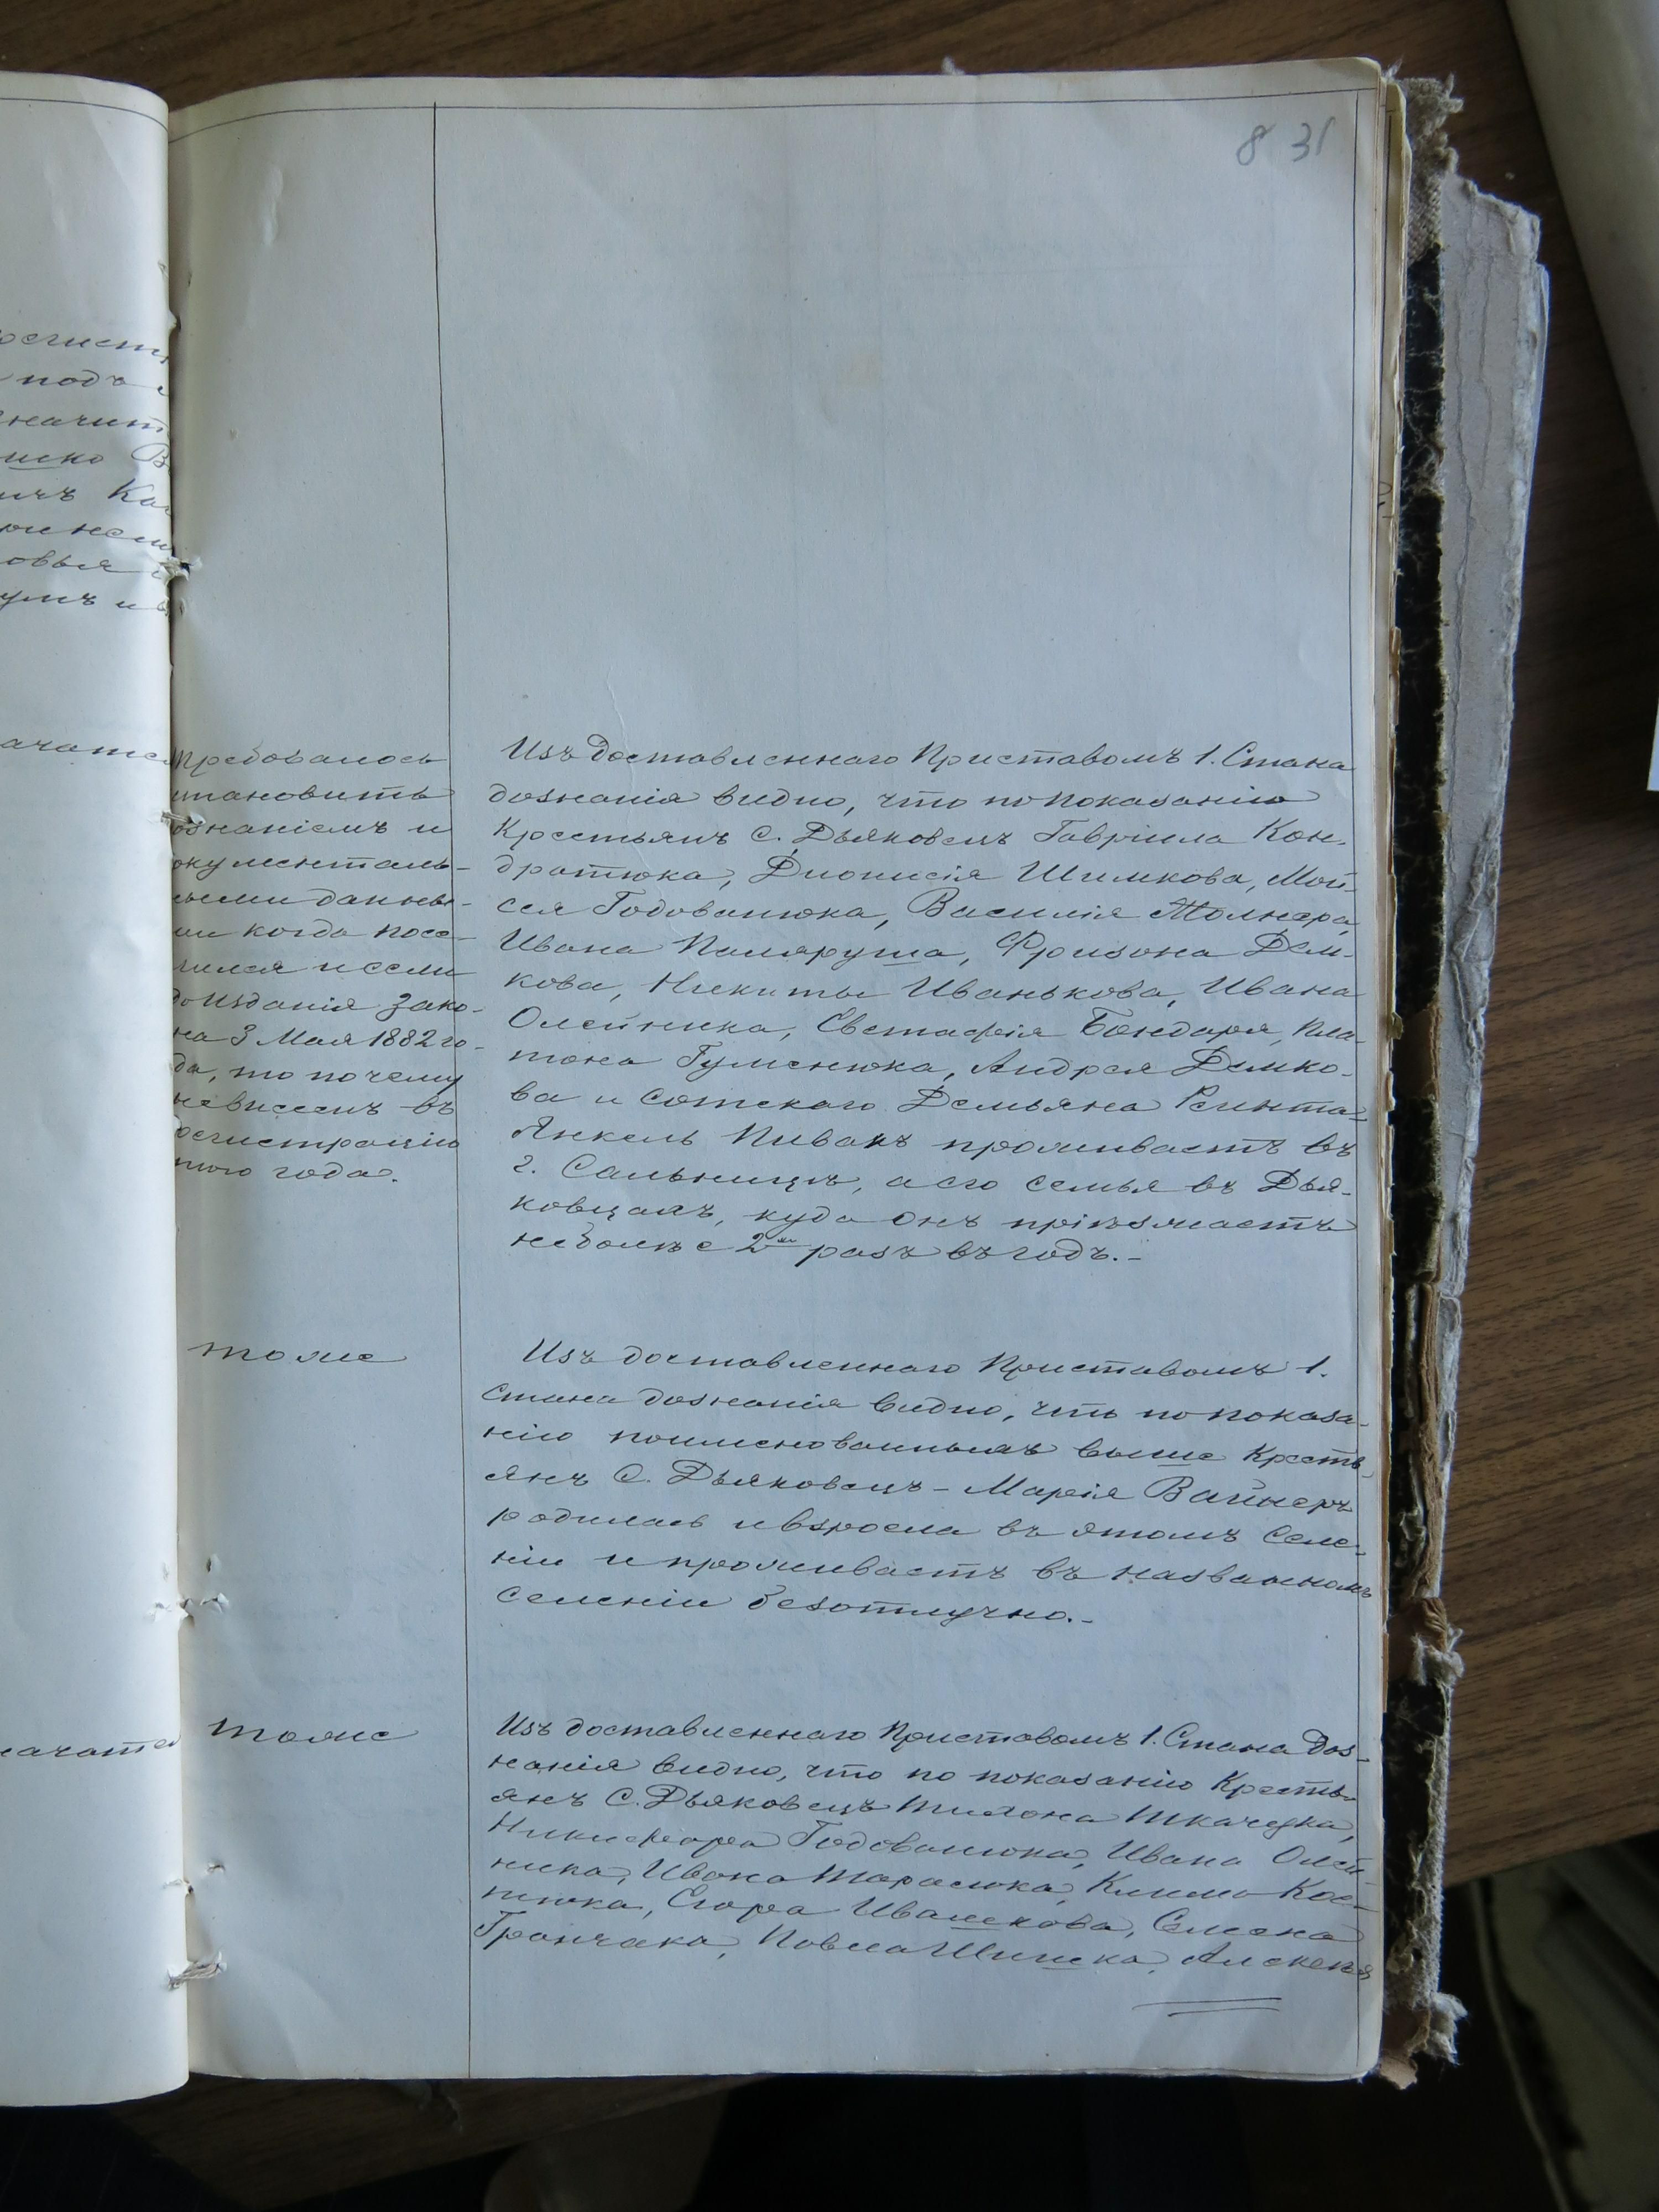 8 31
Требовалось
становить
ознаніемъ и
окументаль-
ными данны-
ми когда посе-
лился и если
до изданія Зако-
на 3 Мая 1882 го-
да, то почему
невнесенъ въ
регистрацію
того года.
Изъ доставленнаго Приставомъ 1. Стана
дознанія видно, что по показанію
Крестьянъ С. Дьяковецъ Гавріила Кон-
дратюка, Дионисія Шимкова, Мой-
сея Годованюка, Василія Молнера,
Ивана Паляруша, Фризона Дем-
кова, Никиты Иванькова, Ивана
Олейника, Евстафія Бондаря, Пла-
тона Гуменюка, Андрея Демко-
ва и Сотскаго Демьяна
Янкель Пивакъ проживаетъ въ
г. Сальницѣ, а его семья въ Дья-
ковцахъ, куда онъ пріѣзжаетъ
неболѣе 2хъ разъ въ годъ.-
тоже
Изъ доставленнаго Приставомъ 1.
Стана дознанія видно, что по показа-
нію поименованныхъ выше Кресть-
янъ С. Дьяковецъ - Марія Вайнеръ
родилась и взросла въ этомъ Селе-
ніи и проживаетъ въ названномъ
селеніи безотлучно.-
тоже
Изъ доставленнаго Приставомъ 1. Стана Доз-
нанія видно, что по показанію Кресть-
янъ С. Дьяковецъ Ткачука,
Никифора Годованюка, Ивана Олей-
ника, Ивана Тарасюка, Клима Кос-
тюка, Егора Ивашкова, Семена
Гранчака, Павла Шишка, Алексѣя